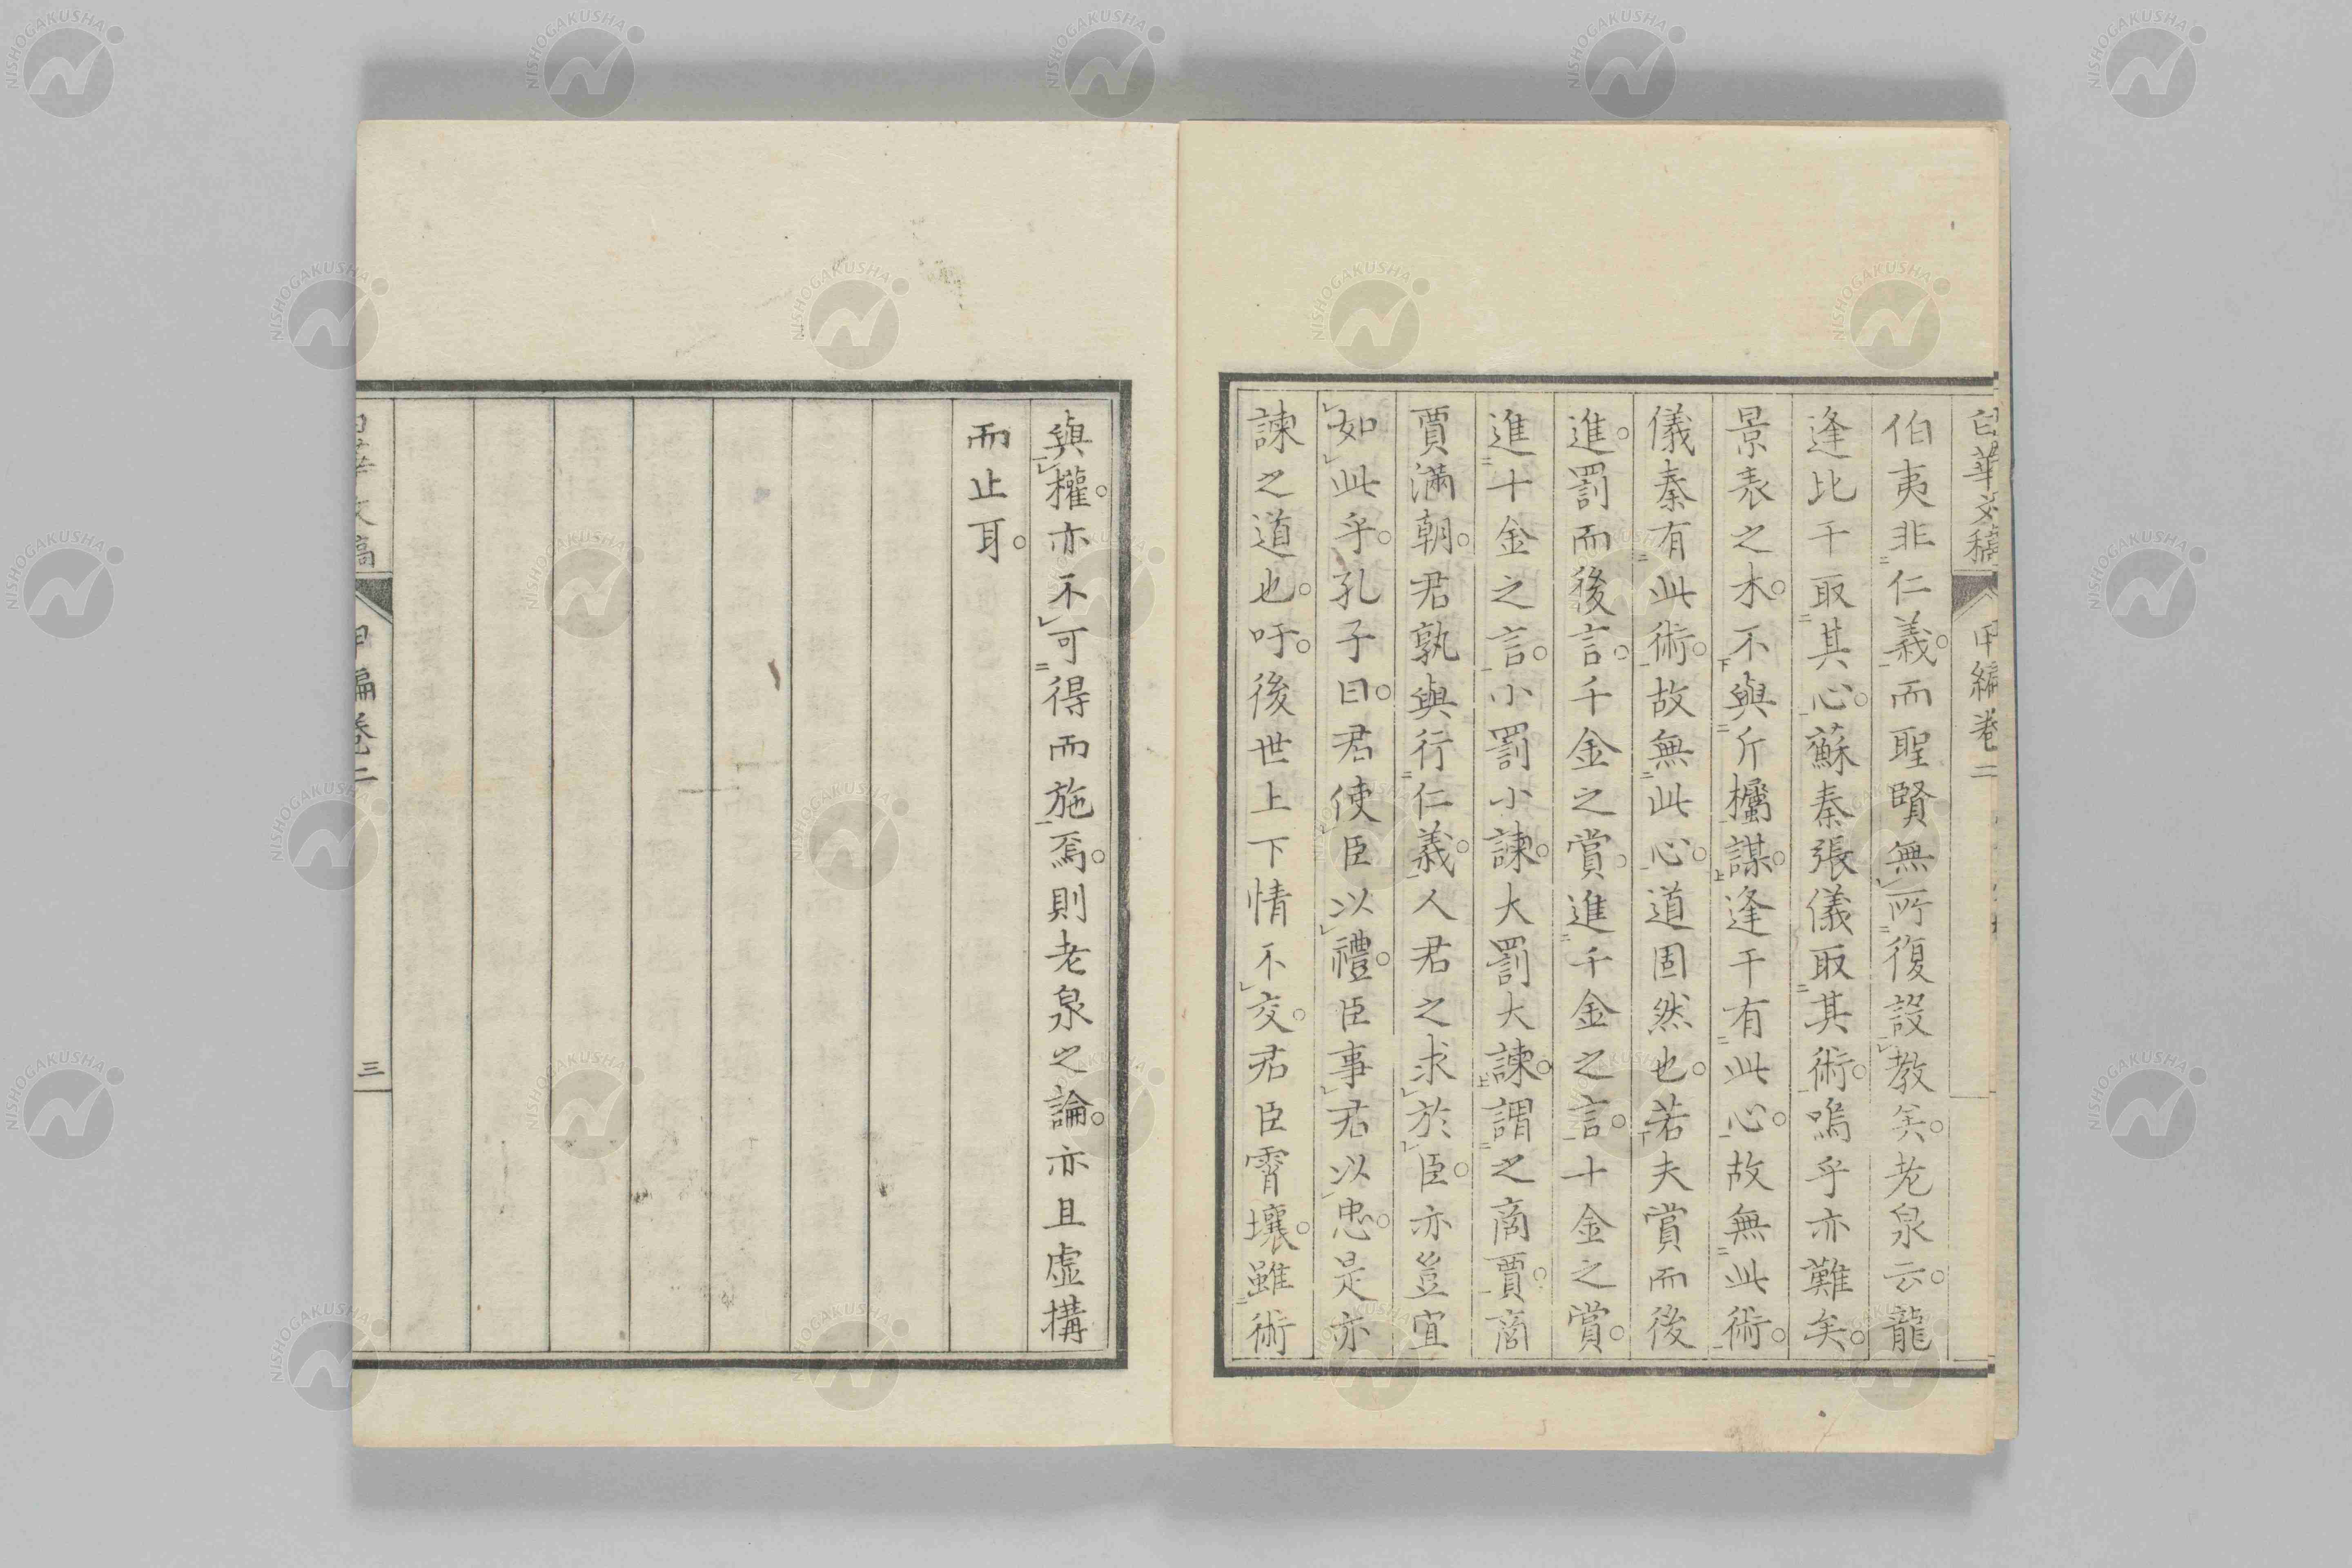 伯夷非仁義。而聖賢無所復設教矣。老泉云。龍
逢比干取其心。蘇秦張儀取其術。嗚乎亦難矣。
景表之木。不與斤欘謀。逢干有此心。故無此術。
儀秦有此術。故無此心。道固然也。若夫賞而後
進。罰而後言。千金之賞。進千金之言。十金之賞。
進十金之言。小罰小諫。大罰大諫。謂之商賈。商
賈滿朝。君孰與行仁義。人君之求於臣。亦豈宜
如此乎。孔子曰。君使臣以禮。臣事君以忠。是亦
諫之道也。吁。後世上下情不交。君臣霄壤。雖術
與權。亦不可得而施焉。則老泉之論。亦且虛構
而止耳。
文稿
甲編卷二
編卷二
三
NISHOGAKUSHA